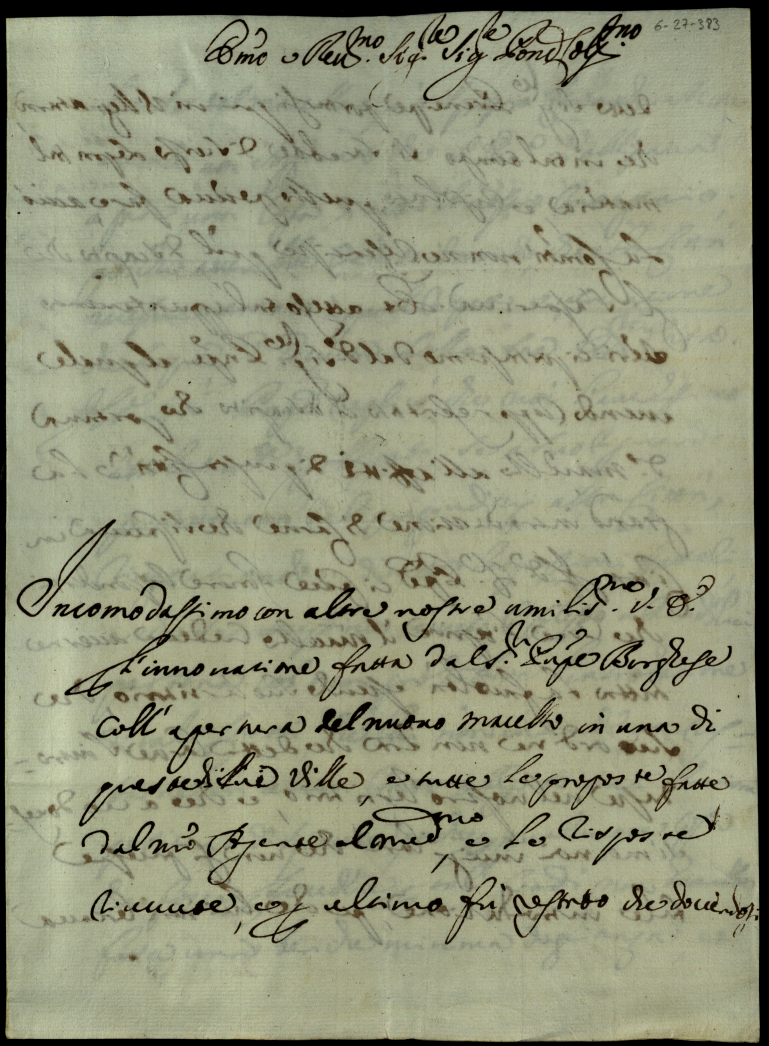 6-27-383
Em̃o e Reu.mo Sig.re Sig.re Pone Col.mo
Incomodassimo con altre nostre umilis.me V. E.
l'innouatione fatta dal S.r Pnpe Borghese
coll' apertura del nuouo macello in una di
queste di lui Ville, e tutte le proposte fatte
dal nr̃o Agente al med.mo, e le risposte
riceuute, e p ultimo fù restato che douendosi